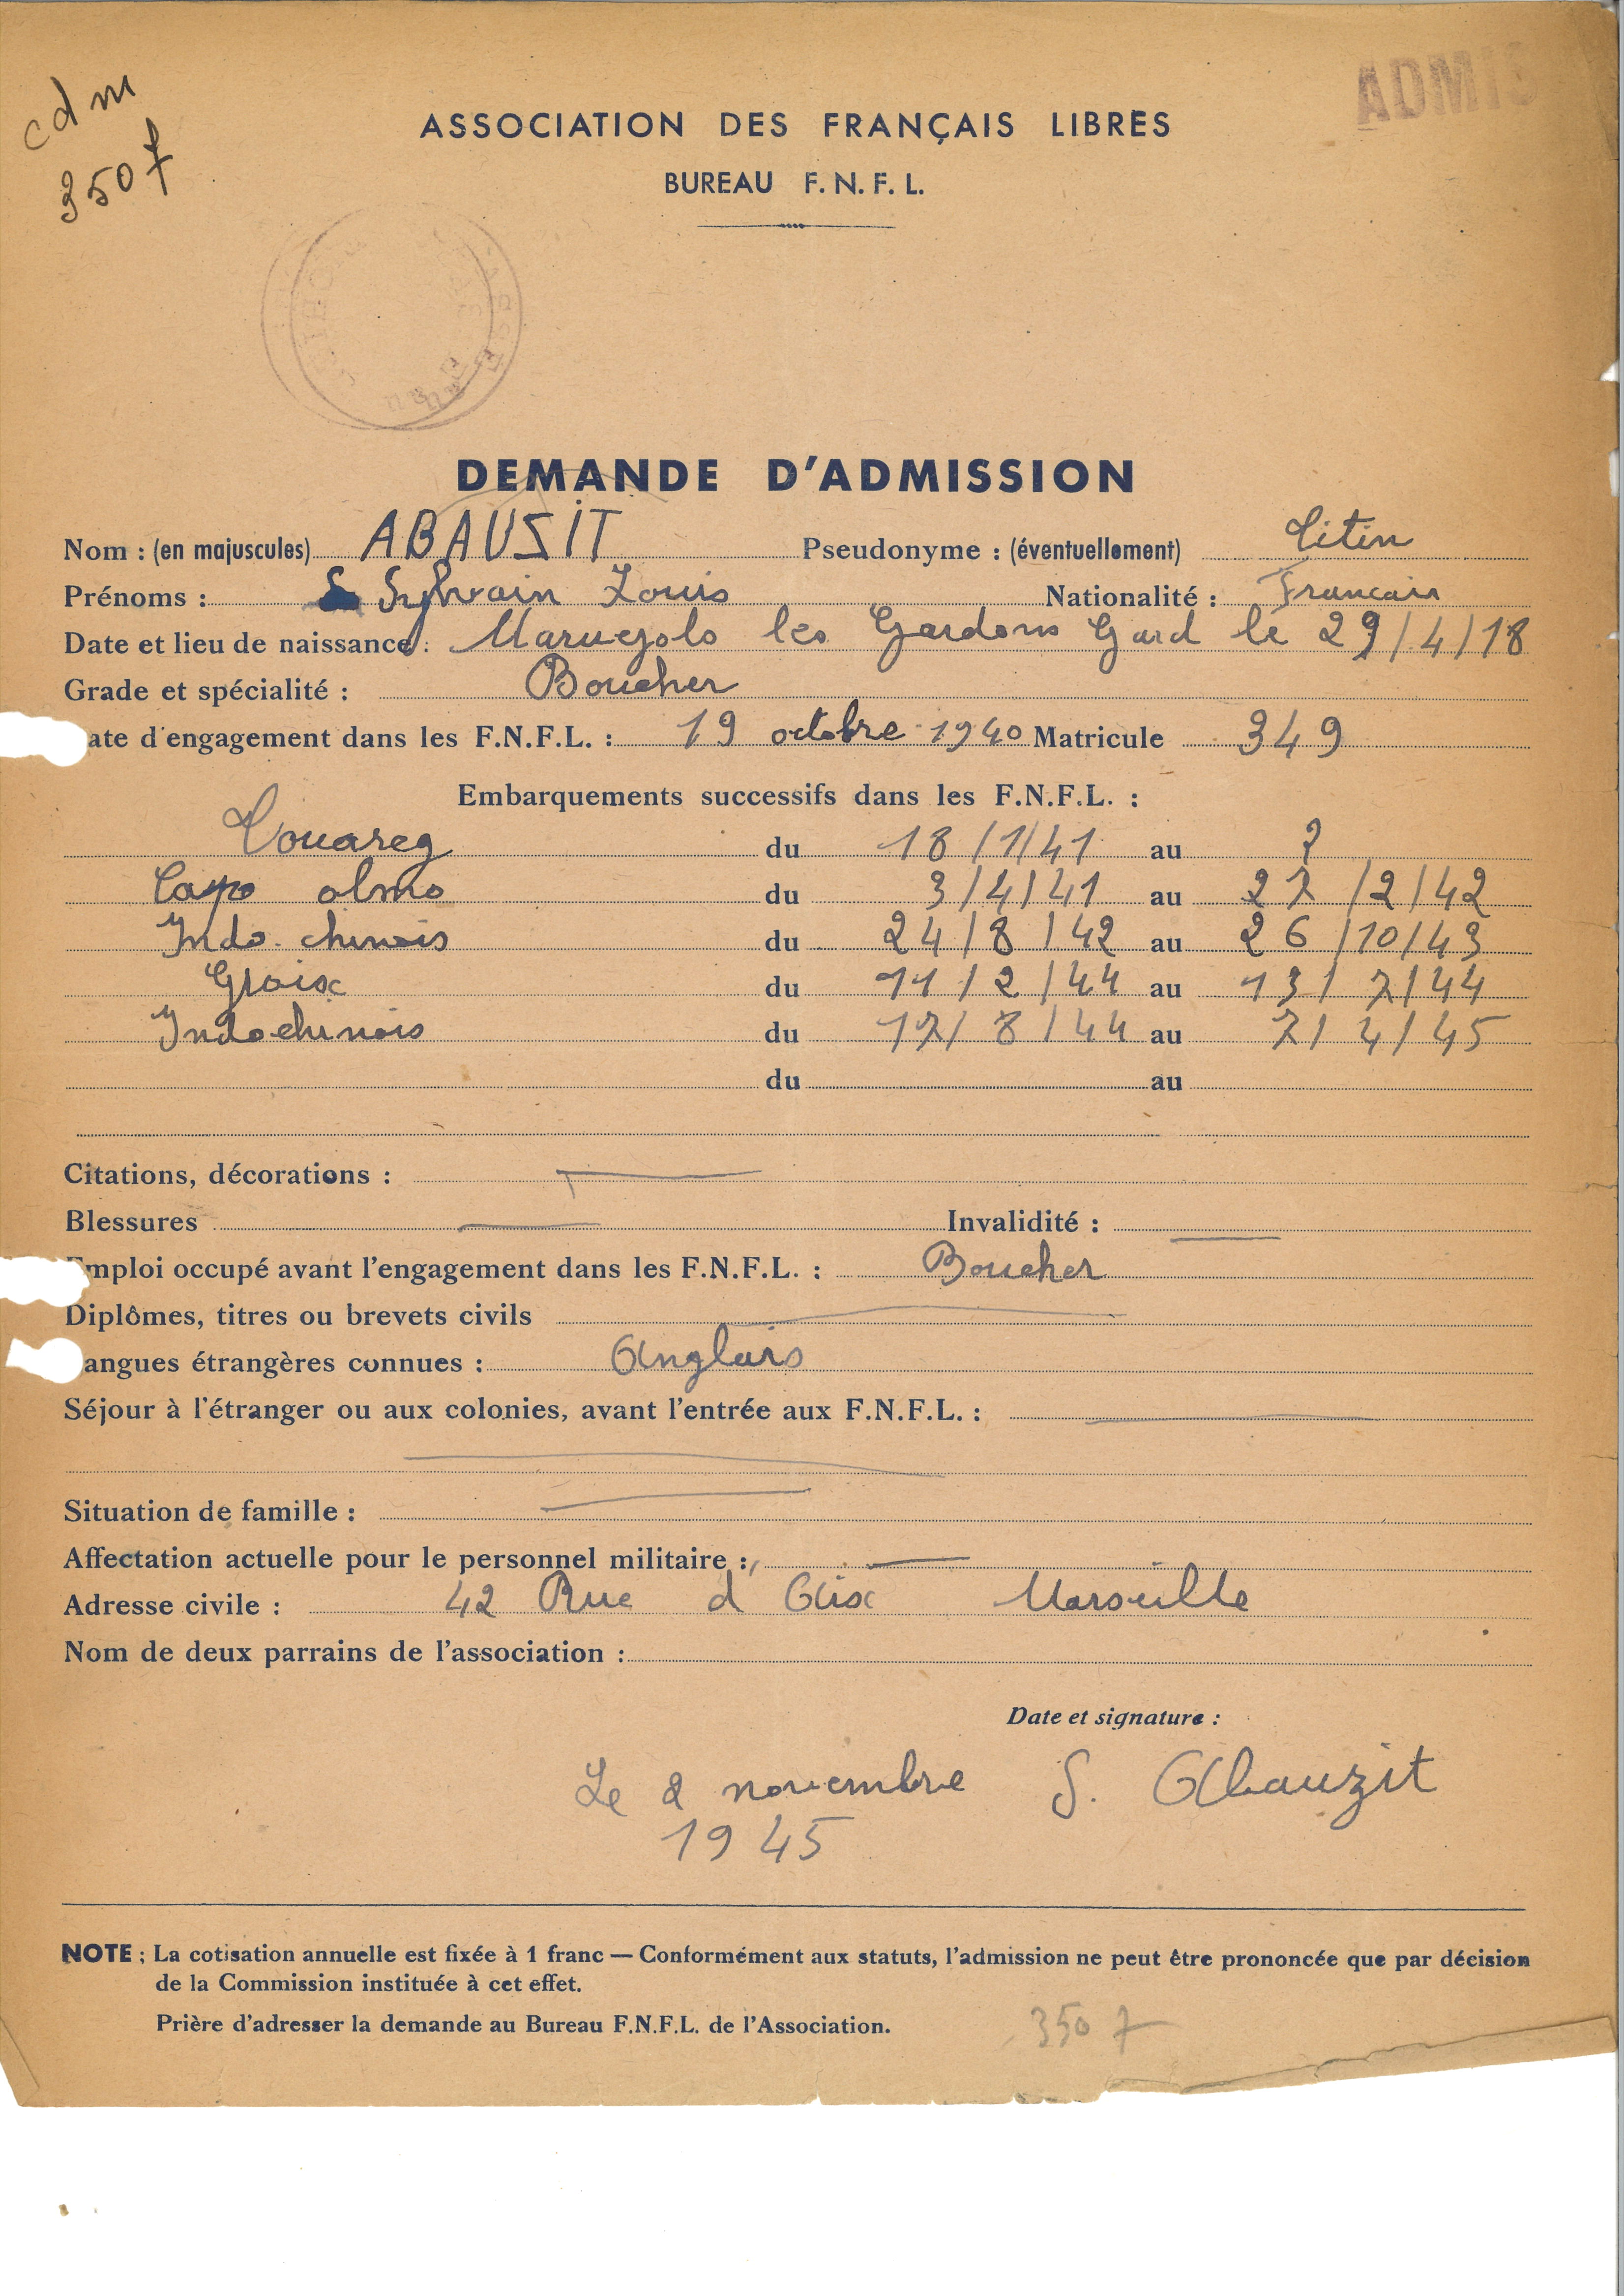 cdm
3507
ADMIS
ASSOCIATION DES FRANÇAIS LIBRES
BUREAU F.N.F.L.
DEMANDE D'ADMISSION
Nom : (en majuscules) ABAUSIT Pseudonyme : (éventuellement) Titin
Prénoms : S Sylvain Louis Nationalité : Francais
Date et lieu de naissance : Maruejols les Gardons Gard le 29/4/18
Grade et spécialité : Boucher
ate d'engagement dans les F.N.F.L. : 19 octobre 1940 Matricule 349
Embarquements successifs dans les F.N.F.L. :
Touareg du 18/1/41 au ?
Capo olmo du 3/4/41 au 27/2/42
Indo. chinois du 24/8/42 au 26/10/43
Groix du 11/2/44 au 13/7/44
Indochinois du 17/8/44 au 7/4/45
du au
Citations, décorations :
Blessures Invalidité :
mploi occupé avant l'engagement dans les F.N.F.L. : Boucher
Diplômes, titres ou brevets civils
angues étrangères connues : Anglais
Séjour à l'étranger ou aux colonies, avant l'entrée aux F.N.F.L. :
Situation de famille :
Affectation actuelle pour le personnel militaire :
Adresse civile : 42 Rue d Aix Marseille
Nom de deux parrains de l'association :
Date et signature :
Le 2 novembre S. Abauzit
1945
NOTE : La cotisation annuelle est fixée à 1 franc — Conformément aux statuts, l'admission ne peut être prononcée que par décision
de la Commission instituée à cet effet.
Prière d'adresser la demande au Bureau F.N.F.L. de l'Association.
3507